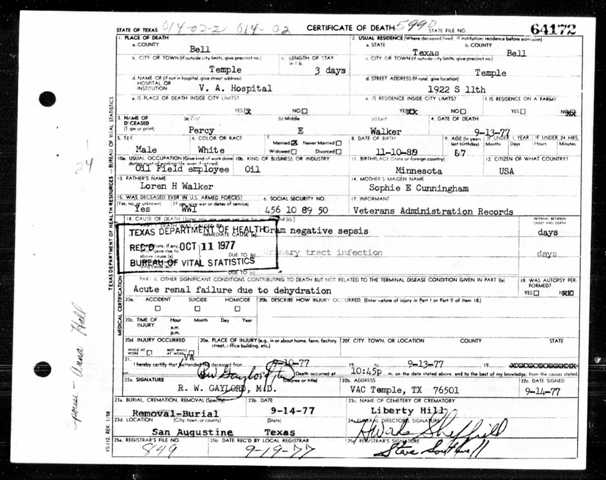 STATE OF TEXAS 014-02-2 014-02 CERTIFICATE OF DEATH 5990 STATE FILE NO. 64172
1. PLACE OF DEATH
2. USUAL RESIDENCE (Where deceased lived. If institution: residence before admission)
a. COUNTY Bell a. STATE Texas b. COUNTY Bell
b. CITY OR TOWN (If outside city limits, give precinct no.) Temple c. LENGTH OF STAY 3 days c. CITY OR TOWN (If outside city limits, give precinct no.) Temple
d. NAME OF (If not in hospital, give street address) HOSPITAL OR INSTITUTION V. A. Hospital d. STREET ADDRESS (If rural, give location) 1922 S 11th
e. IS PLACE OF DEATH INSIDE CITY LIMITS? YES NO e. IS RESIDENCE INSIDE CITY LIMITS? YES NO f. IS RESIDENCE ON A FARM? YES NO
3. NAME OF DECEASED (Type or print) Percy (b) Middle E Walker 4. DATE OF DEATH 9-13-77
5. SEX Male 6. COLOR OR RACE White 7. Married Never Married Widowed Divorced 8. DATE OF BIRTH 11-10-89 9. AGE 87
10a. USUAL OCCUPATION Oil Field employee 10b. KIND OF BUSINESS OR INDUSTRY Oil 11. BIRTHPLACE Minnesota 12. CITIZEN OF WHAT COUNTRY? USA
13. FATHER'S NAME Loren H Walker 14. MOTHER'S MAIDEN NAME Sophie E Cunningham
15. WAS DECEASED EVER IN U.S. ARMED FORCES? Yes WWI 16. SOCIAL SECURITY NO. 456 10 89 50 17. INFORMANT Veterans Administration Records
18. CAUSE OF DEATH
gram negative sepsis days
tract infection days
TEXAS DEPARTMENT OF HEALTH
REC'D OCT 11 1977
BUREAU OF VITAL STATISTICS
OTHER SIGNIFICANT CONDITIONS CONTRIBUTING TO DEATH BUT NOT RELATED TO THE TERMINAL DISEASE CONDITION GIVEN IN PART I(a) 19. WAS AUTOPSY PERFORMED?
Acute renal failure due to dehydration YES NO
20a. ACCIDENT SUICIDE HOMICIDE 20b. DESCRIBE HOW INJURY OCCURRED. (Enter nature of injury in Part I or Part II of item 18.)
20c. TIME OF INJURY Hour Month Day Year a.m. p.m.
20d. INJURY OCCURRED WHILE AT WORK NOT WHILE AT WORK 20e. PLACE OF INJURY (e.g., in or about home, farm, factory, street, office building, etc.) 20f. CITY, TOWN, OR LOCATION COUNTY STATE
21. I hereby certify that VA attended the deceased from 9-10-77 9-13-77
Death occurred at 10:45p m. on the date stated above, and to the best of my knowledge, from the causes stated.
22a. SIGNATURE R. W. GAYLORD, M.D. 22b. ADDRESS VAC Temple, TX 76501 22c. DATE SIGNED 9-14-77
23a. BURIAL, CREMATION, REMOVAL Removal-Burial 9-14-77 NAME OF CEMETERY OR CREMATORY Liberty Hill
23d. LOCATION (City, town, or county) (State) San Augustine Texas
25a. REGISTRAR'S FILE NO. 849 25b. DATE REC'D BY LOCAL REGISTRAR 9-19-77 25c. REGISTRAR'S SIGNATURE
TEXAS DEPARTMENT OF HEALTH RESOURCES - BUREAU OF VITAL STATISTICS
MEDICAL CERTIFICATION
24